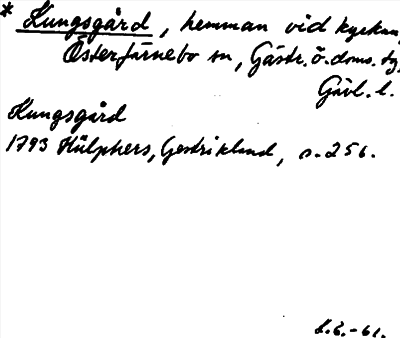 * Kungsgård, hemman vid kyrkan,
Österfärnebo sn, Gästr. ö. doms. tg,
Gävl. l.
Kungsgård
1793 Hülphers, Gestrikland, s. 256.
L.E.-61.